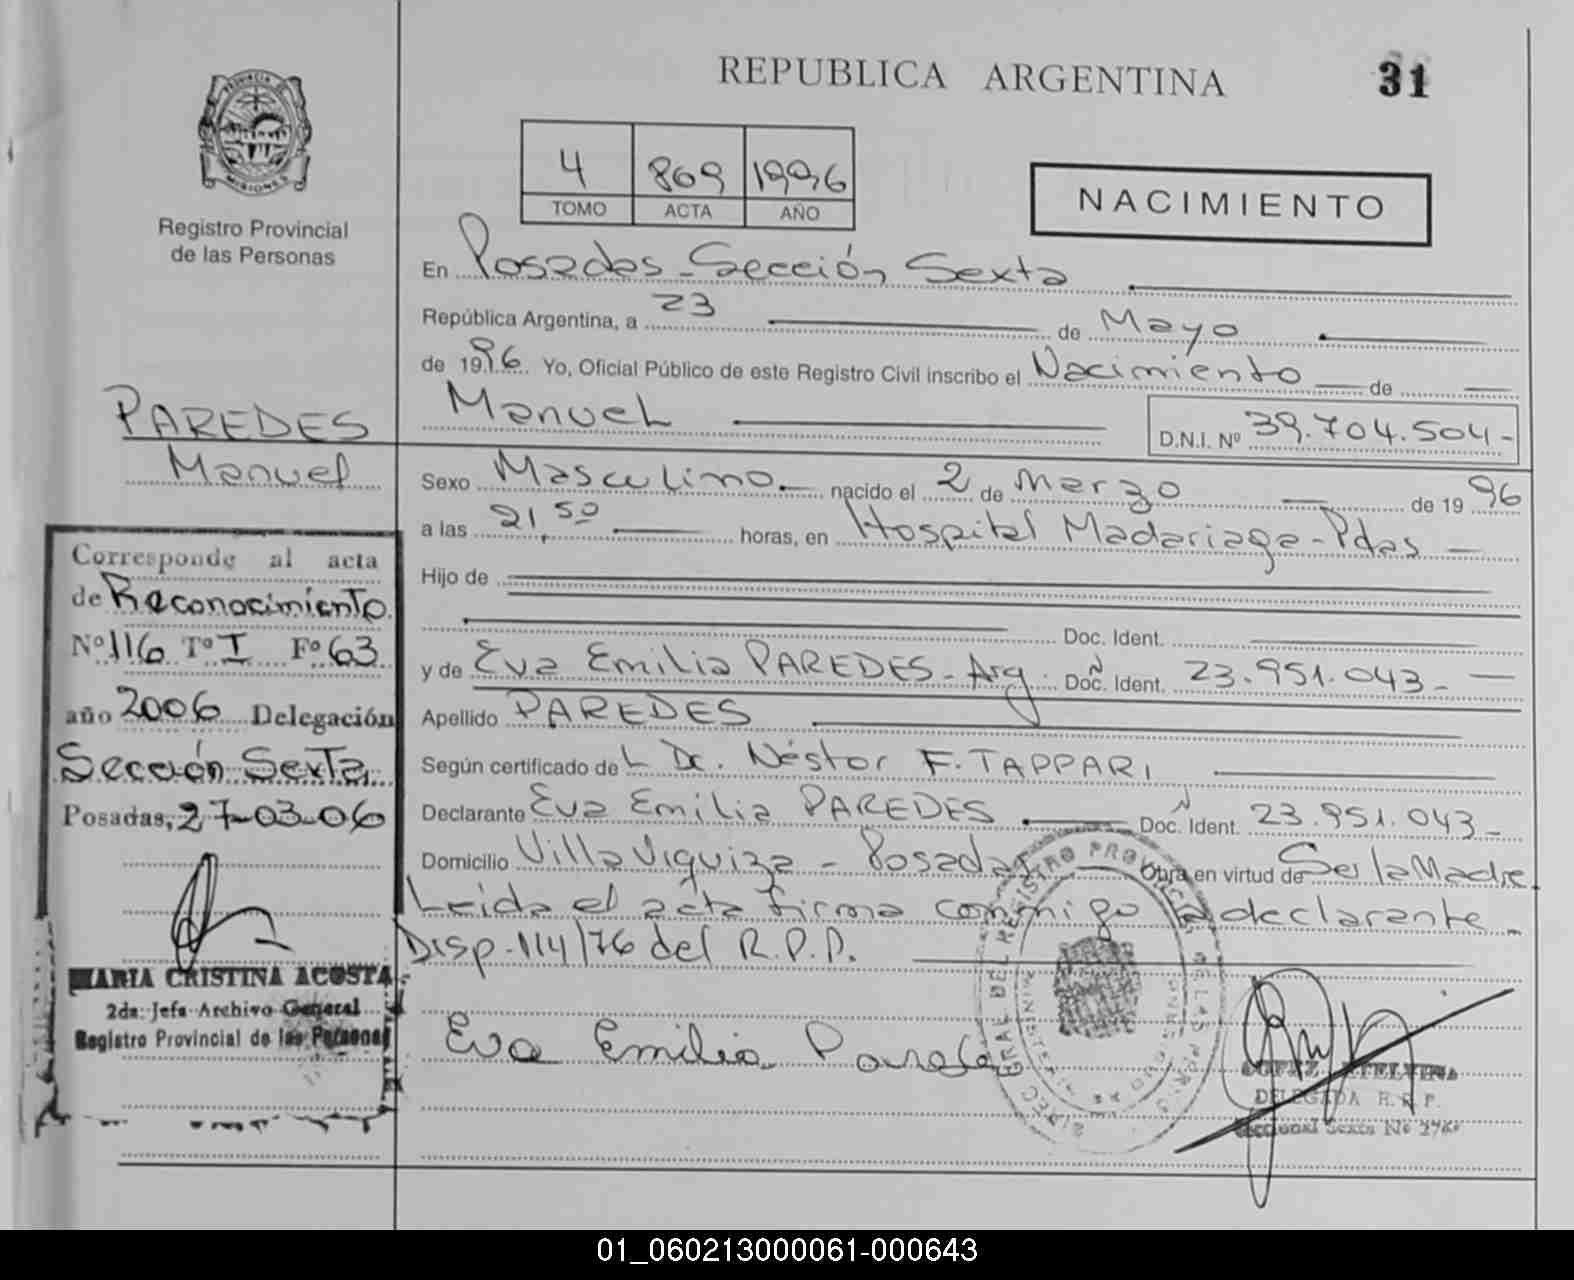 REPUBLICA ARGENTINA
31
PROVINCIA
MISIONES
Registro Provincial
de las Personas
4 869 1996
TOMO ACTA AÑO
NACIMIENTO
En Posadas - Sección Sexta
República Argentina, a 23 de Mayo
de 1996. Yo, Oficial Público de este Registro Civil inscribo el Nacimiento de
Manuel
D.N.I. Nº 39.704.504-
PAREDES
Manuel
Sexo Masculino nacido el 2 de Marzo de 1996
a las 21,50 horas, en Hospital Madariaga - Pdas
Hijo de
Doc. Ident.
y de Eva Emilia PAREDES - Arg. Doc. Ident. 23.951.043-
Apellido PAREDES
Según certificado del Dr. Néstor F. TAPPARI
Declarante Eva Emilia PAREDES Doc. Ident. 23.951.043-
Domicilio Villa Urquiza - Posadas Obra en virtud de Ser la Madre
Leida el acta firma conmigo la declarante
Disp. 114/76 del R.P.P.
Eva Emilia Paredes
Corresponde al acta
de Reconocimiento
Nº 116 Tº I Fº 63
año 2006 Delegación
Sección Sexta
Posadas, 27-03-06
MARIA CRISTINA ACOSTA
2da. Jefa Archivo General
Registro Provincial de las Personas
DELEGADA R.P.P.
Seccional Sexta
01_060213000061-000643